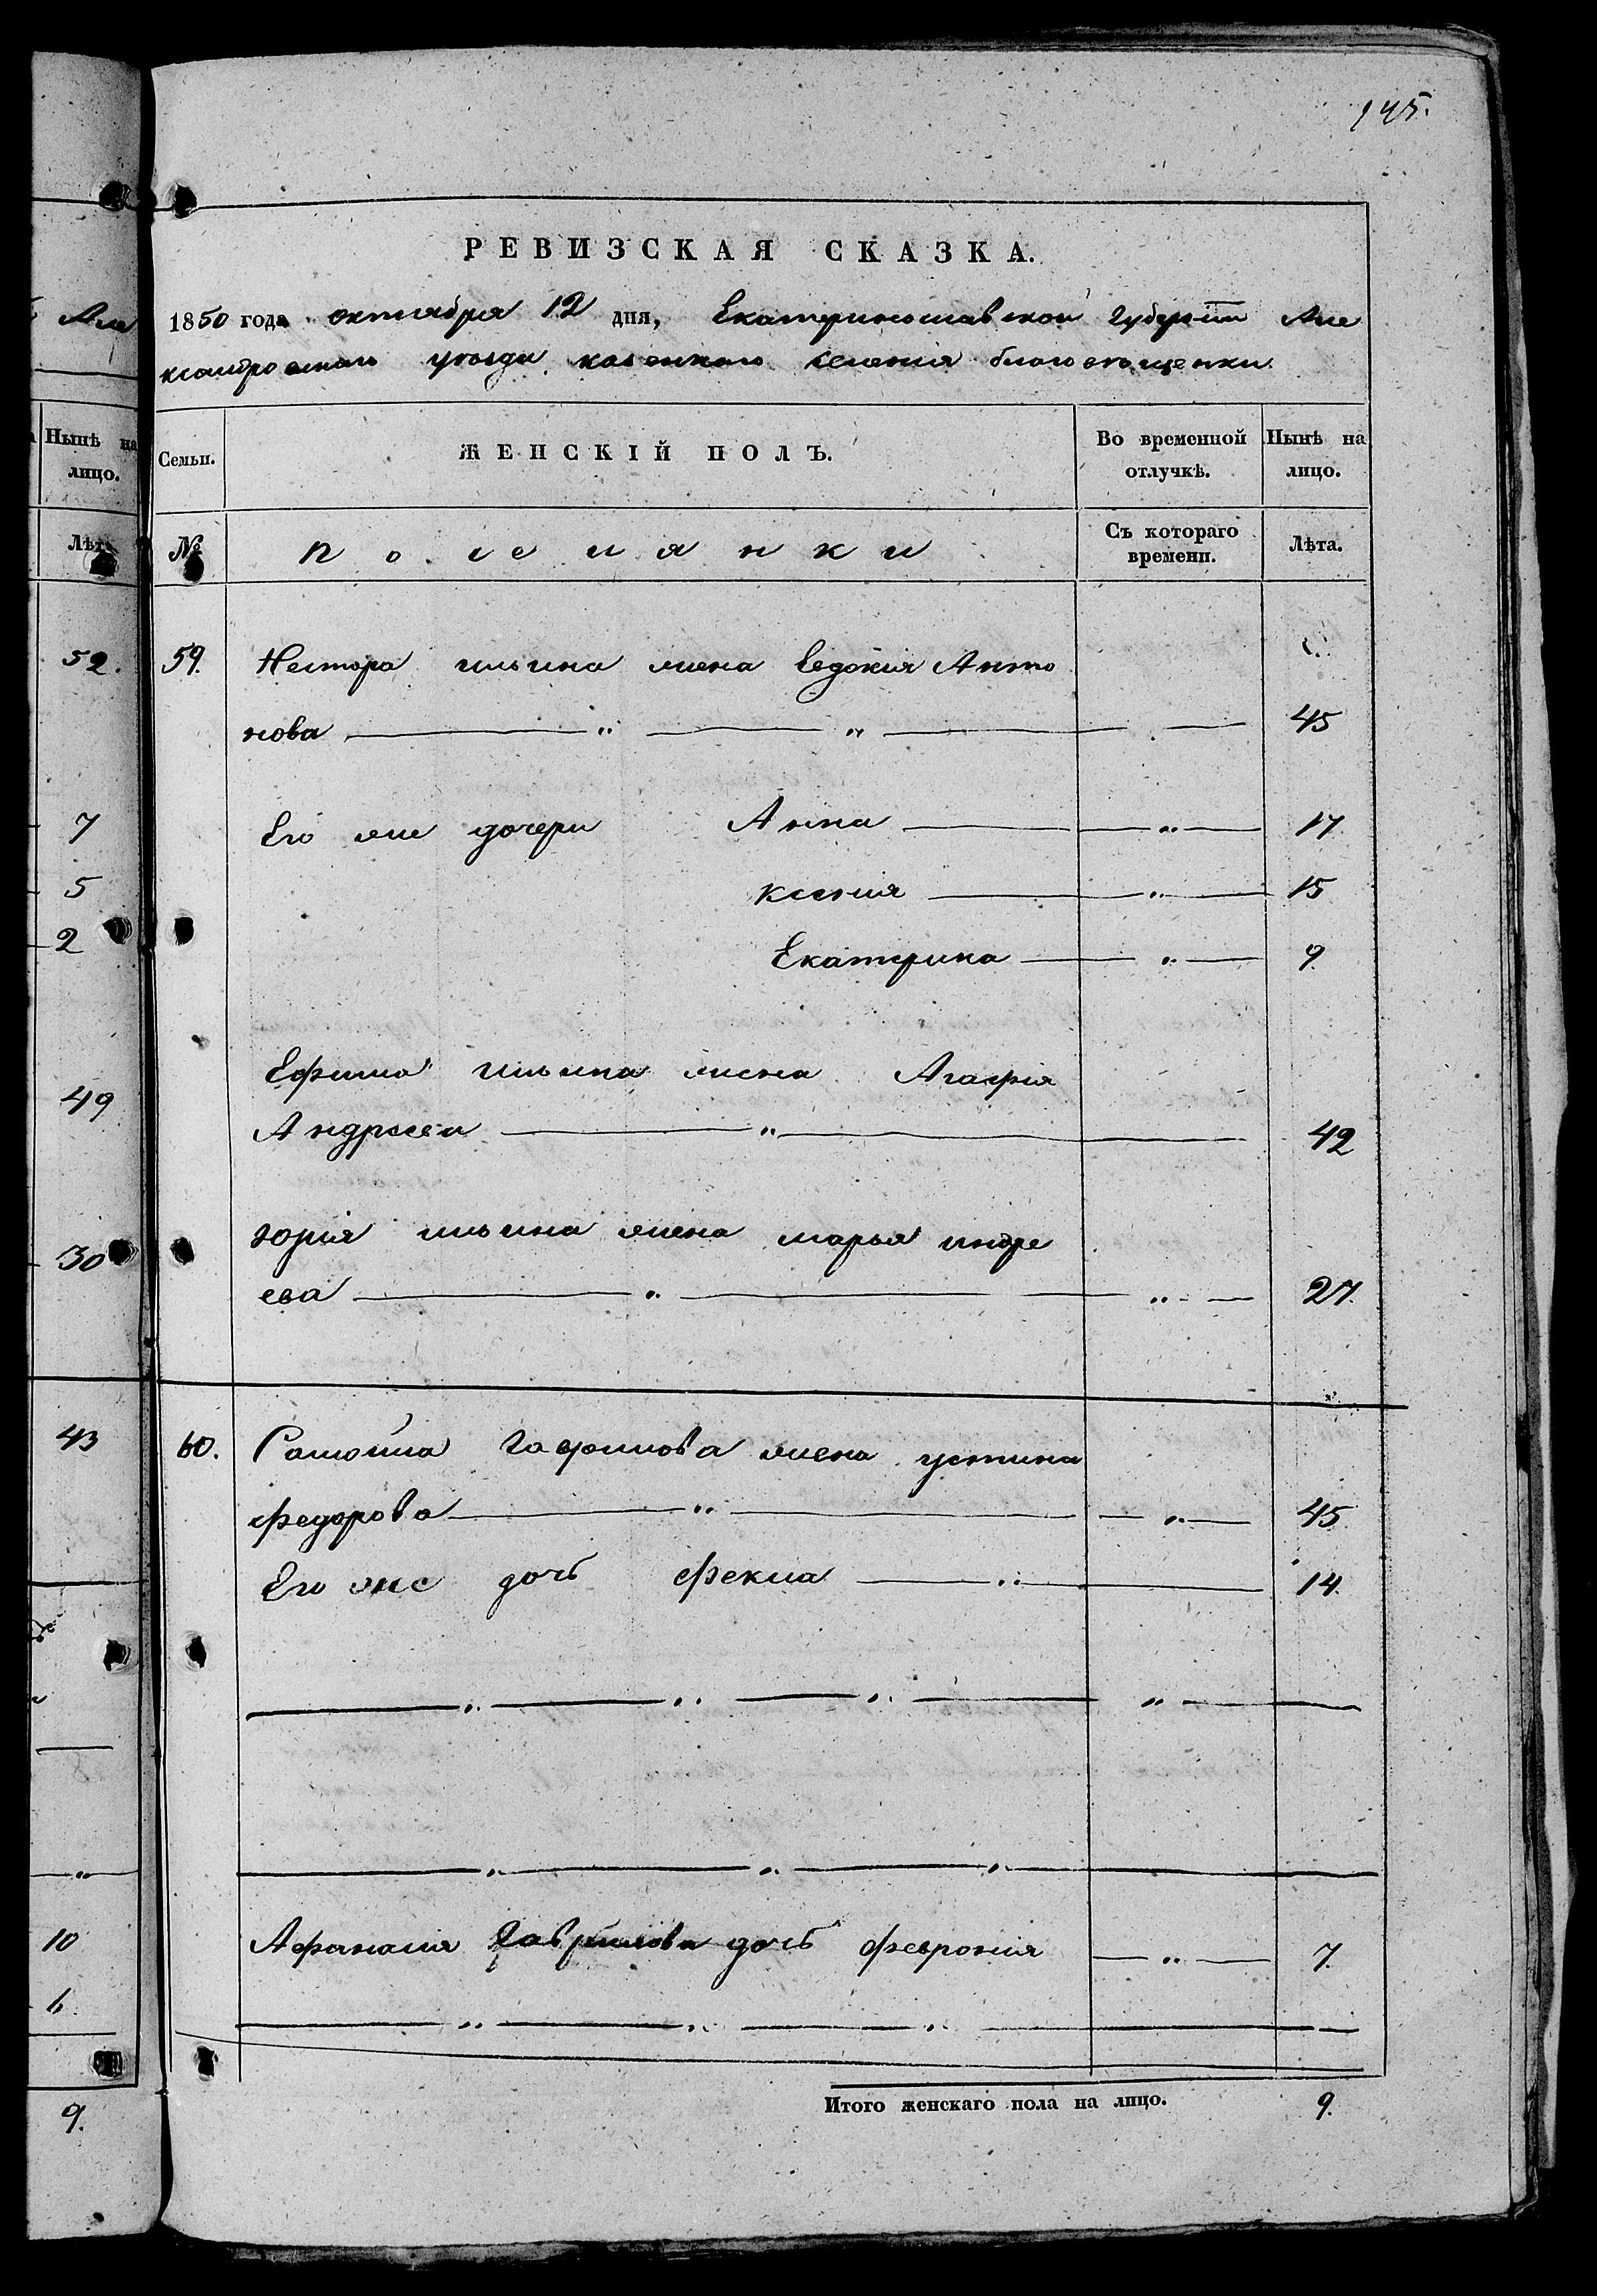 145.
РЕВИЗСКАЯ СКАЗКА.
Але
1850 года октября 12 дня, Екатеринославской губерніи Але
ксандровскаго уѣзда казеннаго селенія благовѣщенки.
Нынѣ на лицо.
Семьи.
ЖЕНСКІЙ ПОЛЪ.
Во временной отлучкѣ.
Нынѣ на лицо.
Лѣта
№
поселянки
Съ котораго времени.
Лѣта.
52.
59. Нестора ильина жена Евдокія Анто
нова — " — " — 45
7
Его же дочери Анна — " — 17
5
Ксенія — " — 15
2
Екатерина — " — 9.
49
Ефима ильина жена Агафія
Андреева — " — 42
30
юрія ильина жена марья андре
ева — " — " — 27.
43
60. Самойла гаврилова жена устина
федорова — " — " — 45.
Его же дочь фекла — " — 14.
— " — " — " — " —
— " — " — " —
10
Афанасія Гаврилова дочь февронія — " — 7.
6.
— " — " — " —
9.
Итого женскаго пола на лицо. 9.